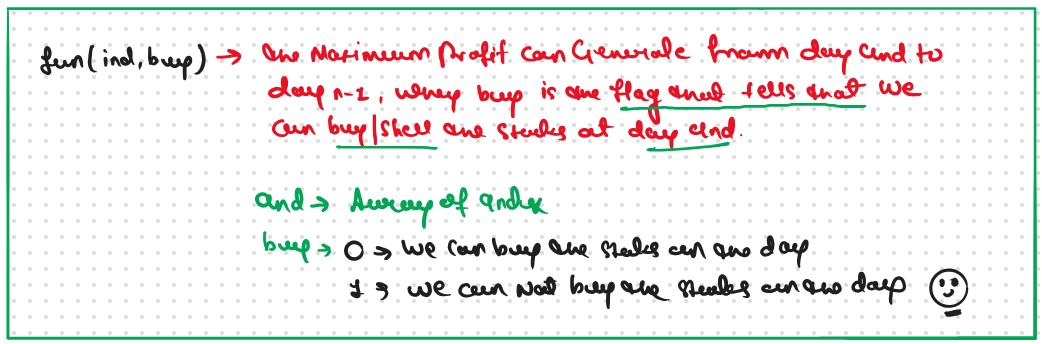 fun(ind, buy) → the Maximum Profit can Generate from day ind to
day n-1, where buy is the flag that tells that we
can buy/shell the stocks at day ind.
ind → Array of index
buy → 0 → we can buy the stocks on the day
1 → we can not buy the stocks on the day